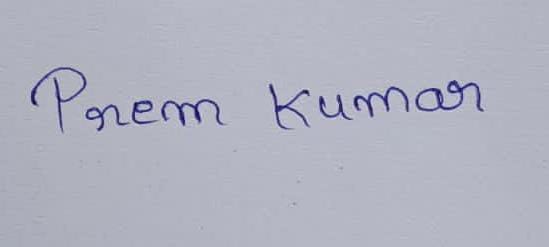 Prem Kumar